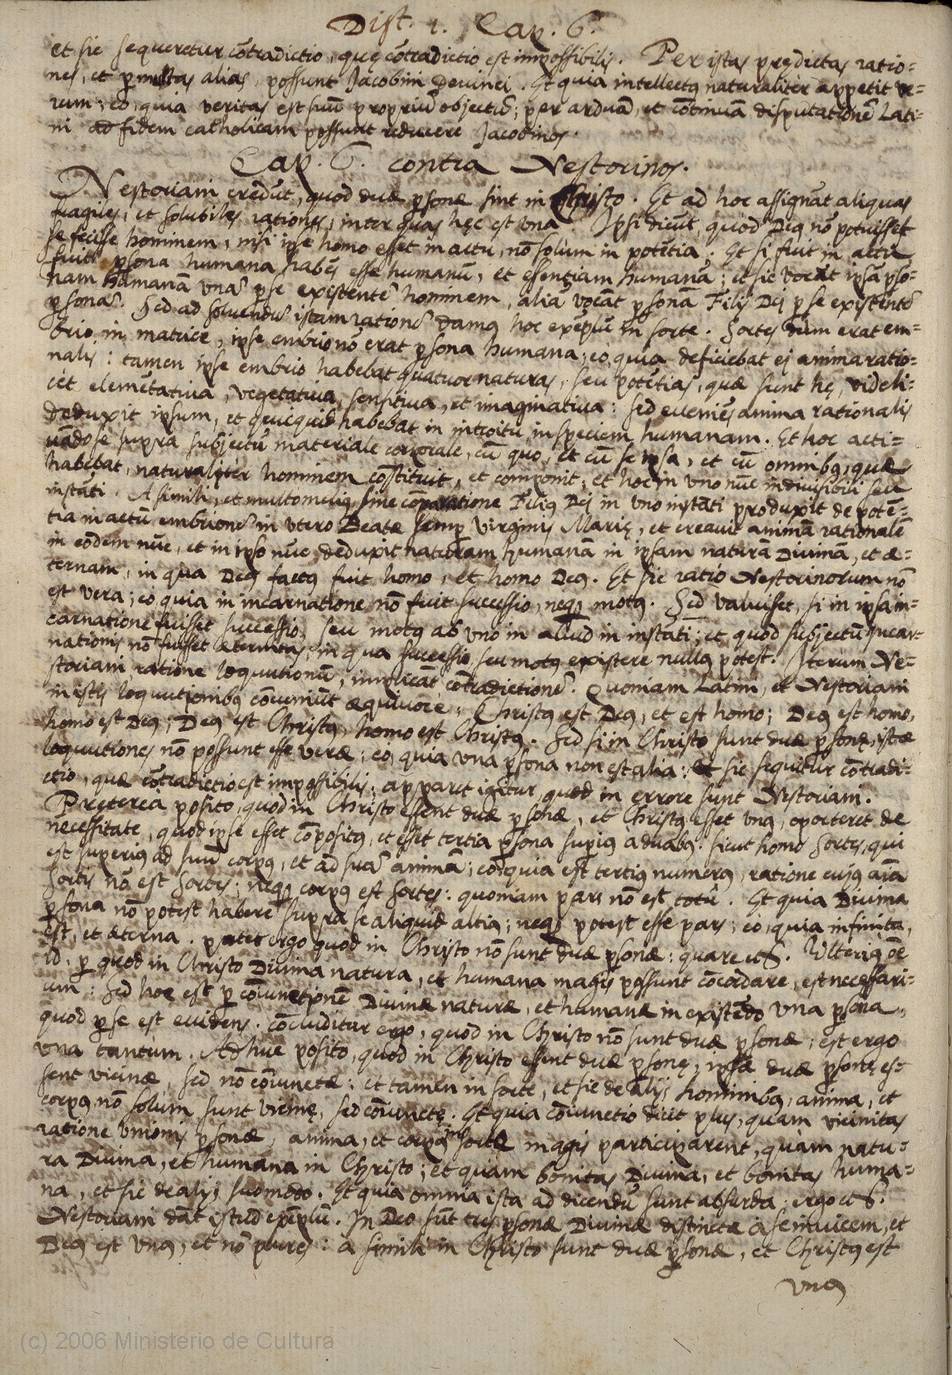 Dist. 1. Cap. 6.
et sic sequeretur cõtradictio, quę cõtradictio est impossibilis. Per istas prędictas ratio=
nes, et p multas alias, possunt Jacobini devinci. Et quia intellectq naturaliter appetit ve=
rum; eo, quia veritas est suũ propriũ objectũ; per arduã, et cõtinuã disputationẽ Lati=
ni ad fidem catholicam possunt reducere Jacobinos.
Cap. 6. contra Nestorinos.
Nestoriani credũt, quod duæ psonæ sint in Christo. Et ad hoc assignãt aliquas
fragiles, et solubiles rationes, inter quas hęc est una. Ipsi dicũt, quod Deq nõ potuisset
se fecisse hominem, nisi ipse homo esset in actu, nõ solum in potẽtia. Et si fuit in actu
fuit psona humana habẽs esse humanũ, et essentiam humanã; et sic vocãt ipsã pso=
nam humanã unã p se existentẽ hominem, aliã vocãt psonã Filij Dei p se existentẽ
psonã. Sed ad solvendũ istam rationẽ damq hoc exẽplũ in sorte. Sortes dum erat em=
brio in matrice, ipse embrio nõ erat psona humana; eo, quia deficiebat ei anima ratio=
nalis: tamen ipse embrio habebat quatuor naturas, seu potẽtias, quæ sunt hę, videli=
cet elemẽtativa, vegetativa, sensitiva, et imaginativa: sed eveniẽs anima rationalis
deduxit ipsum, et quicquid habebat in introitu in speciem humanam. Et hoc acti=
vãdo se supra subjectũ materiale corporale, cũ quo, et cũ se ipsa, et cũ omnibq, quæ
habebat, naturaliter hominem cõstituit, et componit, et hoc in uno nũc indivisibili seu
instãti. A simili, et multo meliq sine cõparatione Filiq Dei in uno instãti produxit de potẽ=
tia in actũ embrionẽ in utero Beatæ semp Virginis Marię, et creavit animã rationalẽ
in eõdem nũc, et in ipso nũc deduxit naturam humanã in ipsam naturã Divinã, et æ=
ternam, in qua Deq factq fuit homo, et homo Deq. Et sic ratio Nestorinorum nõ
est vera; eo, quia in incarnatione nõ fuit successio, neq motq. Sed valuisset, si in ipsa in=
carnatione fuisset successio, seu motq ab uno in aliud in instãti; et quod subjectũ incar=
nationis nõ fuisset æternitas, in qua successio, seu motq existere nullq potest. Iterum Ne=
storiani ratione loquutionũ, implicãt cõtradictionẽ. Quoniam Latini, et Nestoriani
in istis loquutionibq cõveniũt æquivoce; Christq est Deq, et est homo; Deq est homo,
homo est Deq; Deq est Christq, homo est Christq. Sed si in Christo sunt duæ psonæ, istæ
loquutiones nõ possunt esse veræ; eo, quia una psona non est alia; et sic sequitur cõtradi=
ctio, quæ cõtradictio est impossibilis; apparet igitur, quod in errore sunt Nestoriani.
Pręterea posito, quod in Christo essent duæ psonæ, et Christq esset unq, oporteret de
necessitate, quod ipse esset cõpositq, et esset tertia psona supiq a duabq. sicut homo Sortes, qui
est superiq ad suũ corpq, et ad suã animã; eo, quia est tertiq numerq, ratione cujq aĩa
Sortis nõ est Sortes; neq corpq est sortes: quoniam pars nõ est totũ. Et quia Divina
psona nõ potest habere supra se aliquid altiq; neq potest esse pars; eo, quia infinita
est, et æterna. patet ergo quod in Christo nõ sunt duæ psonæ: quare etS. Ulteriq õe
id, p quod in Christo Divina natura, et humana magis possunt cõcordare, est necessari=
um: Sed hoc est p cõiunctionẽ Divinæ naturæ, et humanæ in existẽdo una psona,
quod p se est evidens. cõcluditur ergo, quod in Christo nõ sunt duæ psonæ, est ergo
una tantum. Adhuc posito, quod in Christo essent duæ psonę; ipsæ duæ psonę es=
sent vicinæ, sed nõ cõiunctæ: et tamen in sorte, et sic de alijs hominibq, anima, et
corpq nõ solum sunt vicinę, sed cõiunctę. Et quia cõiunctio dicit plus, quam vicinitas
ratione unionis psonæ, anima, et corpq in sorte magis participarent, quam natu=
ra Divina, et humana in Christo; et quam bonitas Divina, et bonitas huma=
na, et sic de alijs suo modo. Et quia omnia ista ad dicendũ sunt absurda: ergo etS.
Nestoriani dãt istud exẽplũ. In Deo sũt tres psonæ Divinæ distinctæ a se invicem, et
Deq est unq, et nõ plures: a simili in Christo sunt duæ psonæ, et Christq est
unq
(c) 2006 Ministerio de Cultura